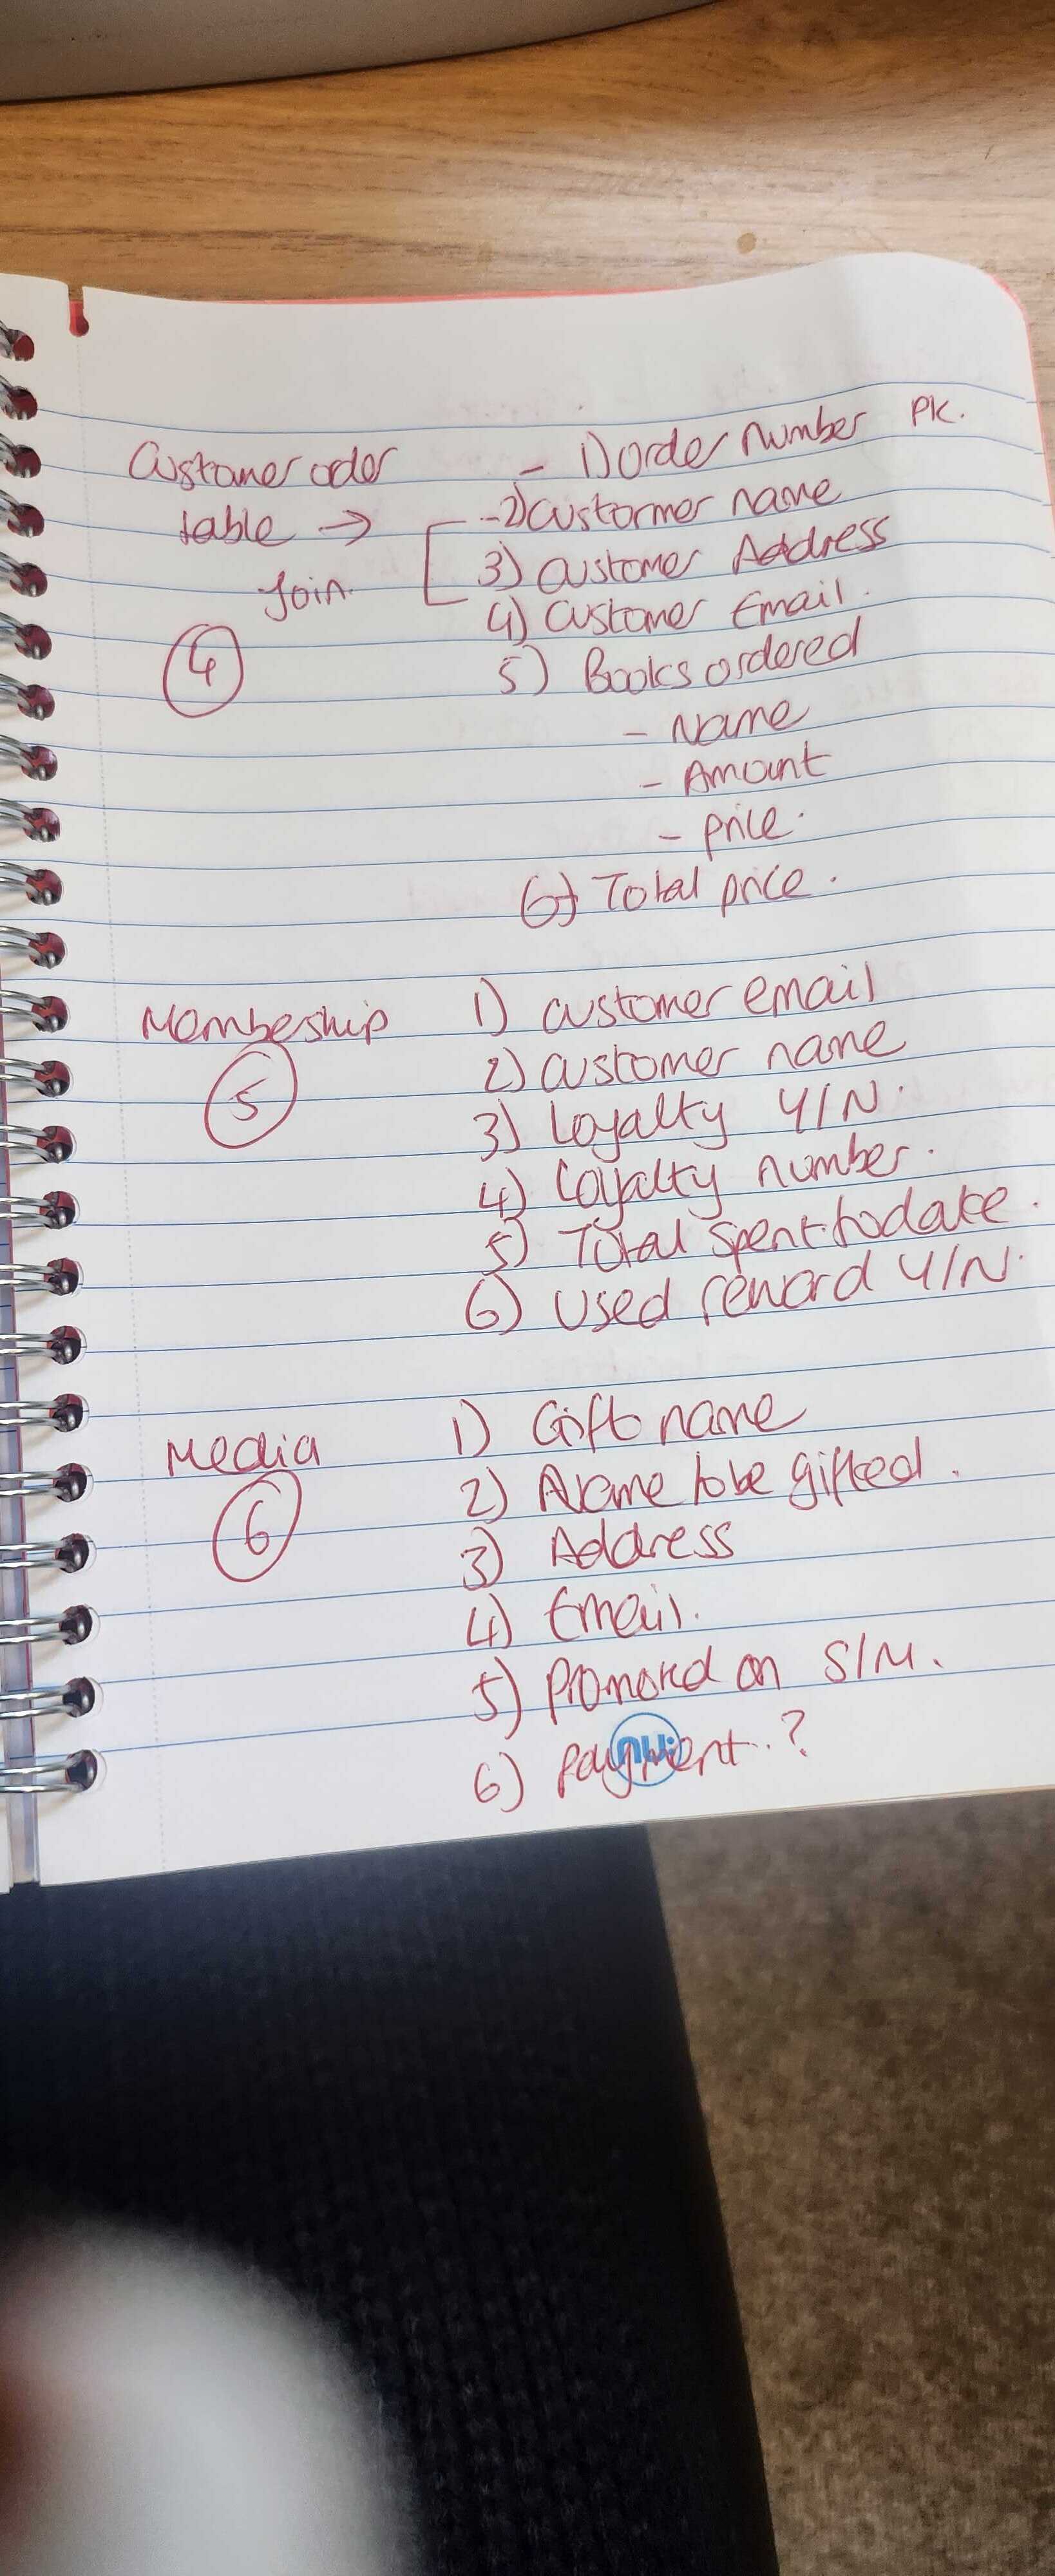 Customer oder - 1) Order Number PK.
table → -2) Custormer name
Join. 3) Customer Address
4) Customer Email.
④ 5) Books ordered
- Name
- Amount
- price.
6) Total price.
Membeship 1) customer email
⑤ 2) customer name
3) Loyalty Y/N.
4) Loyalty number.
5) Total spent todate.
6) Used reward Y/N.
Media 1) Gift name
⑥ 2) Name to be gifted.
3) Address
4) Email.
5) Promoted on S/M.
6) Payment..?